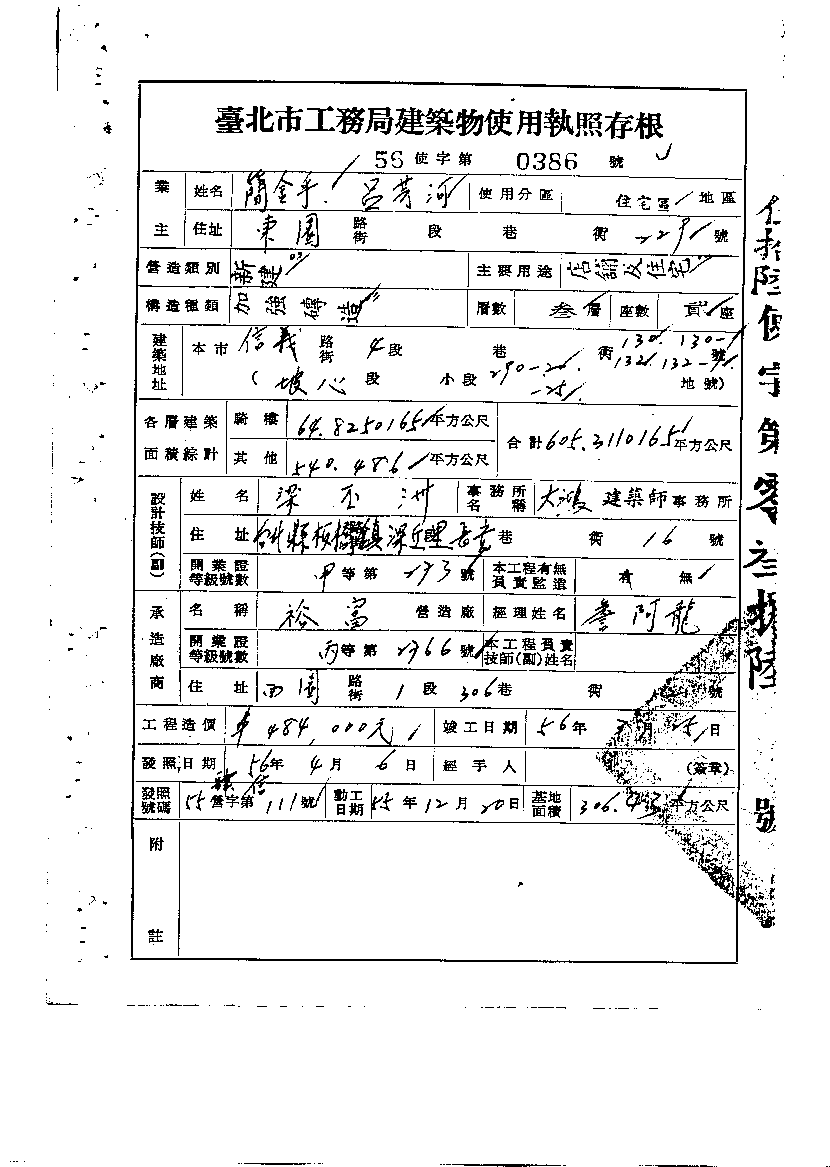 臺北市工務局建築物使用執照存根
56 使字第 0386 號
業主 姓名 簡金 呂芳河 使用分區 住宅區 地區
住址 東園 路街 段 巷 街 229 號
營造類別 新建 主要用途 店舖及住宅
構造種類 加強磚造 層數 叁層 座數 貳座
建築地址 本市 信義 路街 4段 巷 街 130. 130-1 132. 132-1 號
(坡心段 小段 290-26 -25 地號)
各層建築面積綜計 騎樓 64.8250165平方公尺 合計605.3110165平方公尺
其他 540.486平方公尺
設計技師(副) 姓名 深丕洲 事務所名稱 大鴻 建築師事務所
住址 台北縣板橋鎮深丘里長壽巷 街 16 號
開業證等級號數 甲等第 273 號 本工程有無負責監造 有 無
承造廠商 名稱 裕富 營造廠 經理姓名 詹阿龍
開業證等級號數 丙等第 2766 號 本工程負責技師(副)姓名
住址 西園 路街 1段 306巷 街 號
工程造價 484,000元 竣工日期 56年 月 25日
發照日期 56年 4月 6日 經手人 (簽章)
發照號碼 55營字第111號 動工日期 55年12月20日 基地面積 306. 平方公尺
附註
伍拾陸使字第零叁捌陸 號